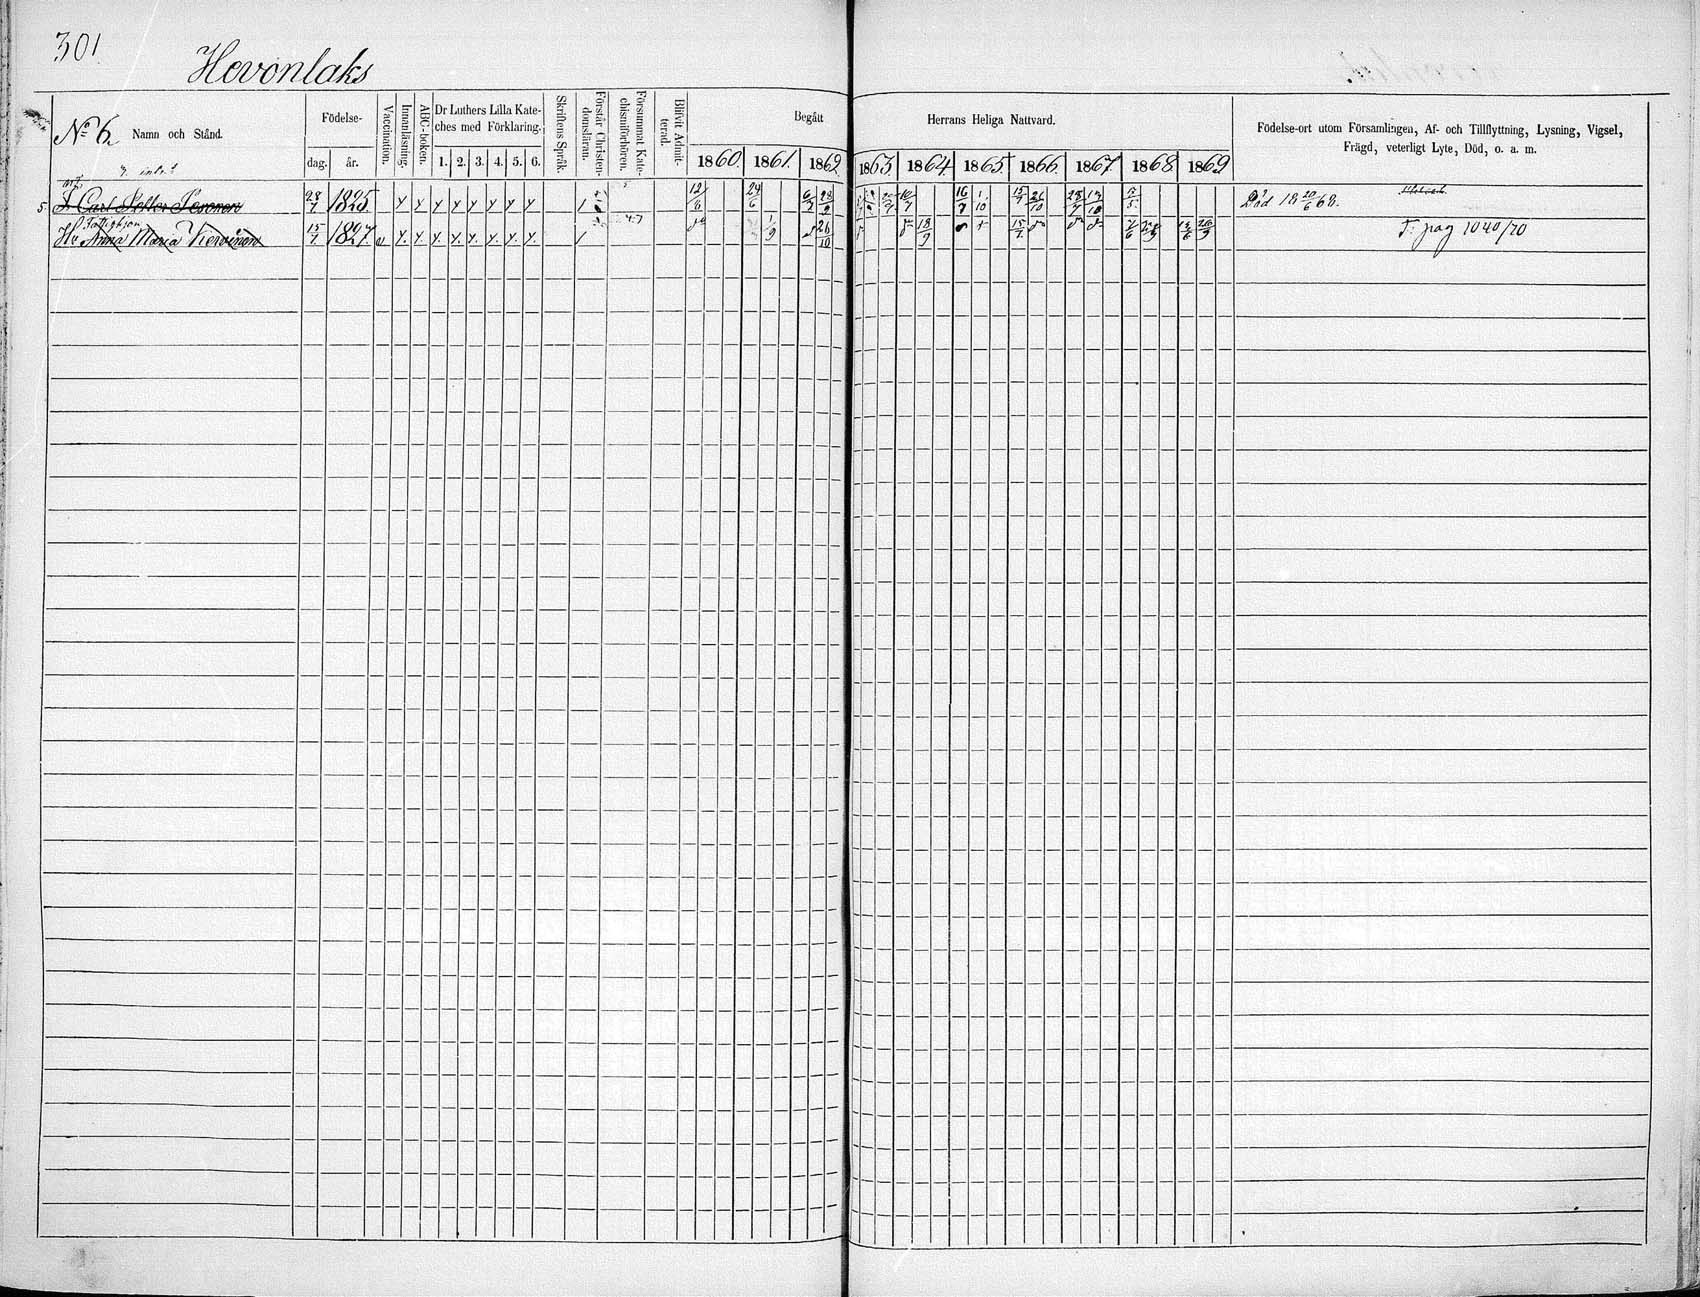 301
Hevonlaks
No 6. Namn och Stånd.
Födelse-
dag. år.
Vaccination.
Innanläsning.
ABC-boken.
Dr Luthers Lilla Kate-
ches med Förklaring.
1. 2. 3. 4. 5. 6.
Skriftens Språk.
Förstår Christen-
domsläran.
Försummat Kate-
chismiförhören.
Blifvit Admit-
terad.
Begått Herrans Heliga Nattvard.
1860. 1861. 1862 1863. 1864 1865 1866. 1867. 1868. 1869
Födelse-ort utom Församlingen, Af- och Tillflyttning, Lysning, Vigsel,
Frägd, veterligt Lyte, Död, o. a. m.
5 Carl Pesonen 28/7 1825. y y y y y y y y 12/8 24/6 Död 18 20/6 68.
Hu Anna Maria 15/7 1827. v y. y. y. y. y. y. y. y. 1/9 26/10 18/9 T: pag 1040/70